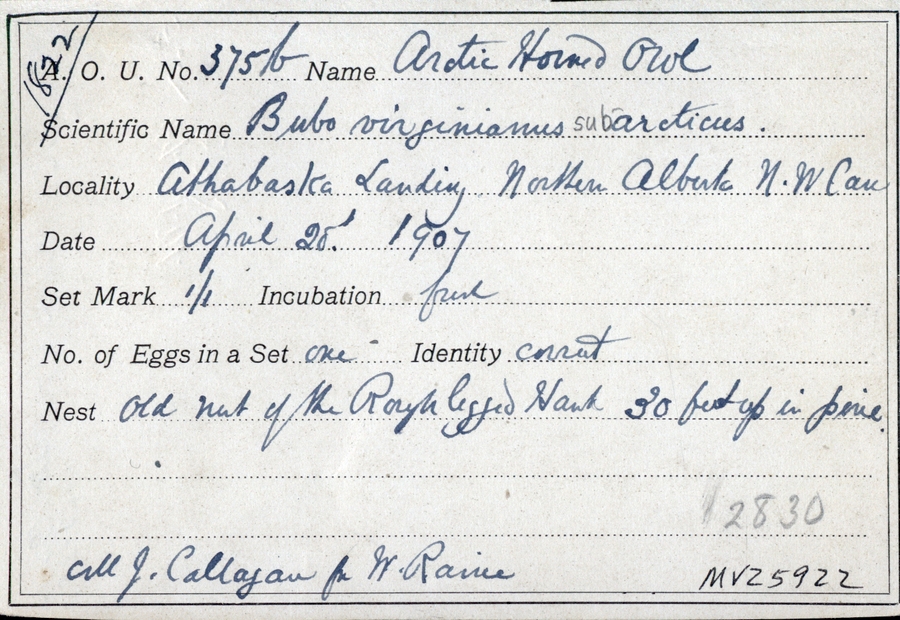 1822
A. O. U. No. 375b Name Arctic Horned Owl
Scientific Name Bubo virginianus subarcticus.
Locality Athabaska Landing Northern Alberta N.W Can
Date April 1907
Set Mark 1/1 Incubation fresh
No. of Eggs in a Set one Identity correct
Nest Old nest of the Rough legged Hawk 30 feet up in pine.
2830
coll J. Callagan for W. Raine
MVZ5922